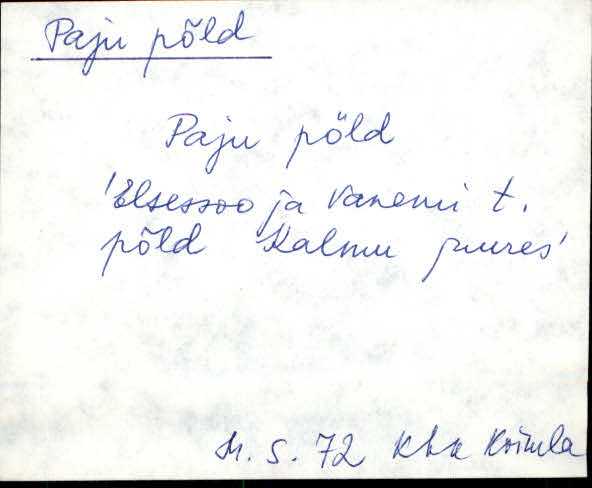 Paju põld
Paju põld
'Elsessoo ja Vanemi t.
põld Kalmu juures'
M. S. 72 Khk Kõimla